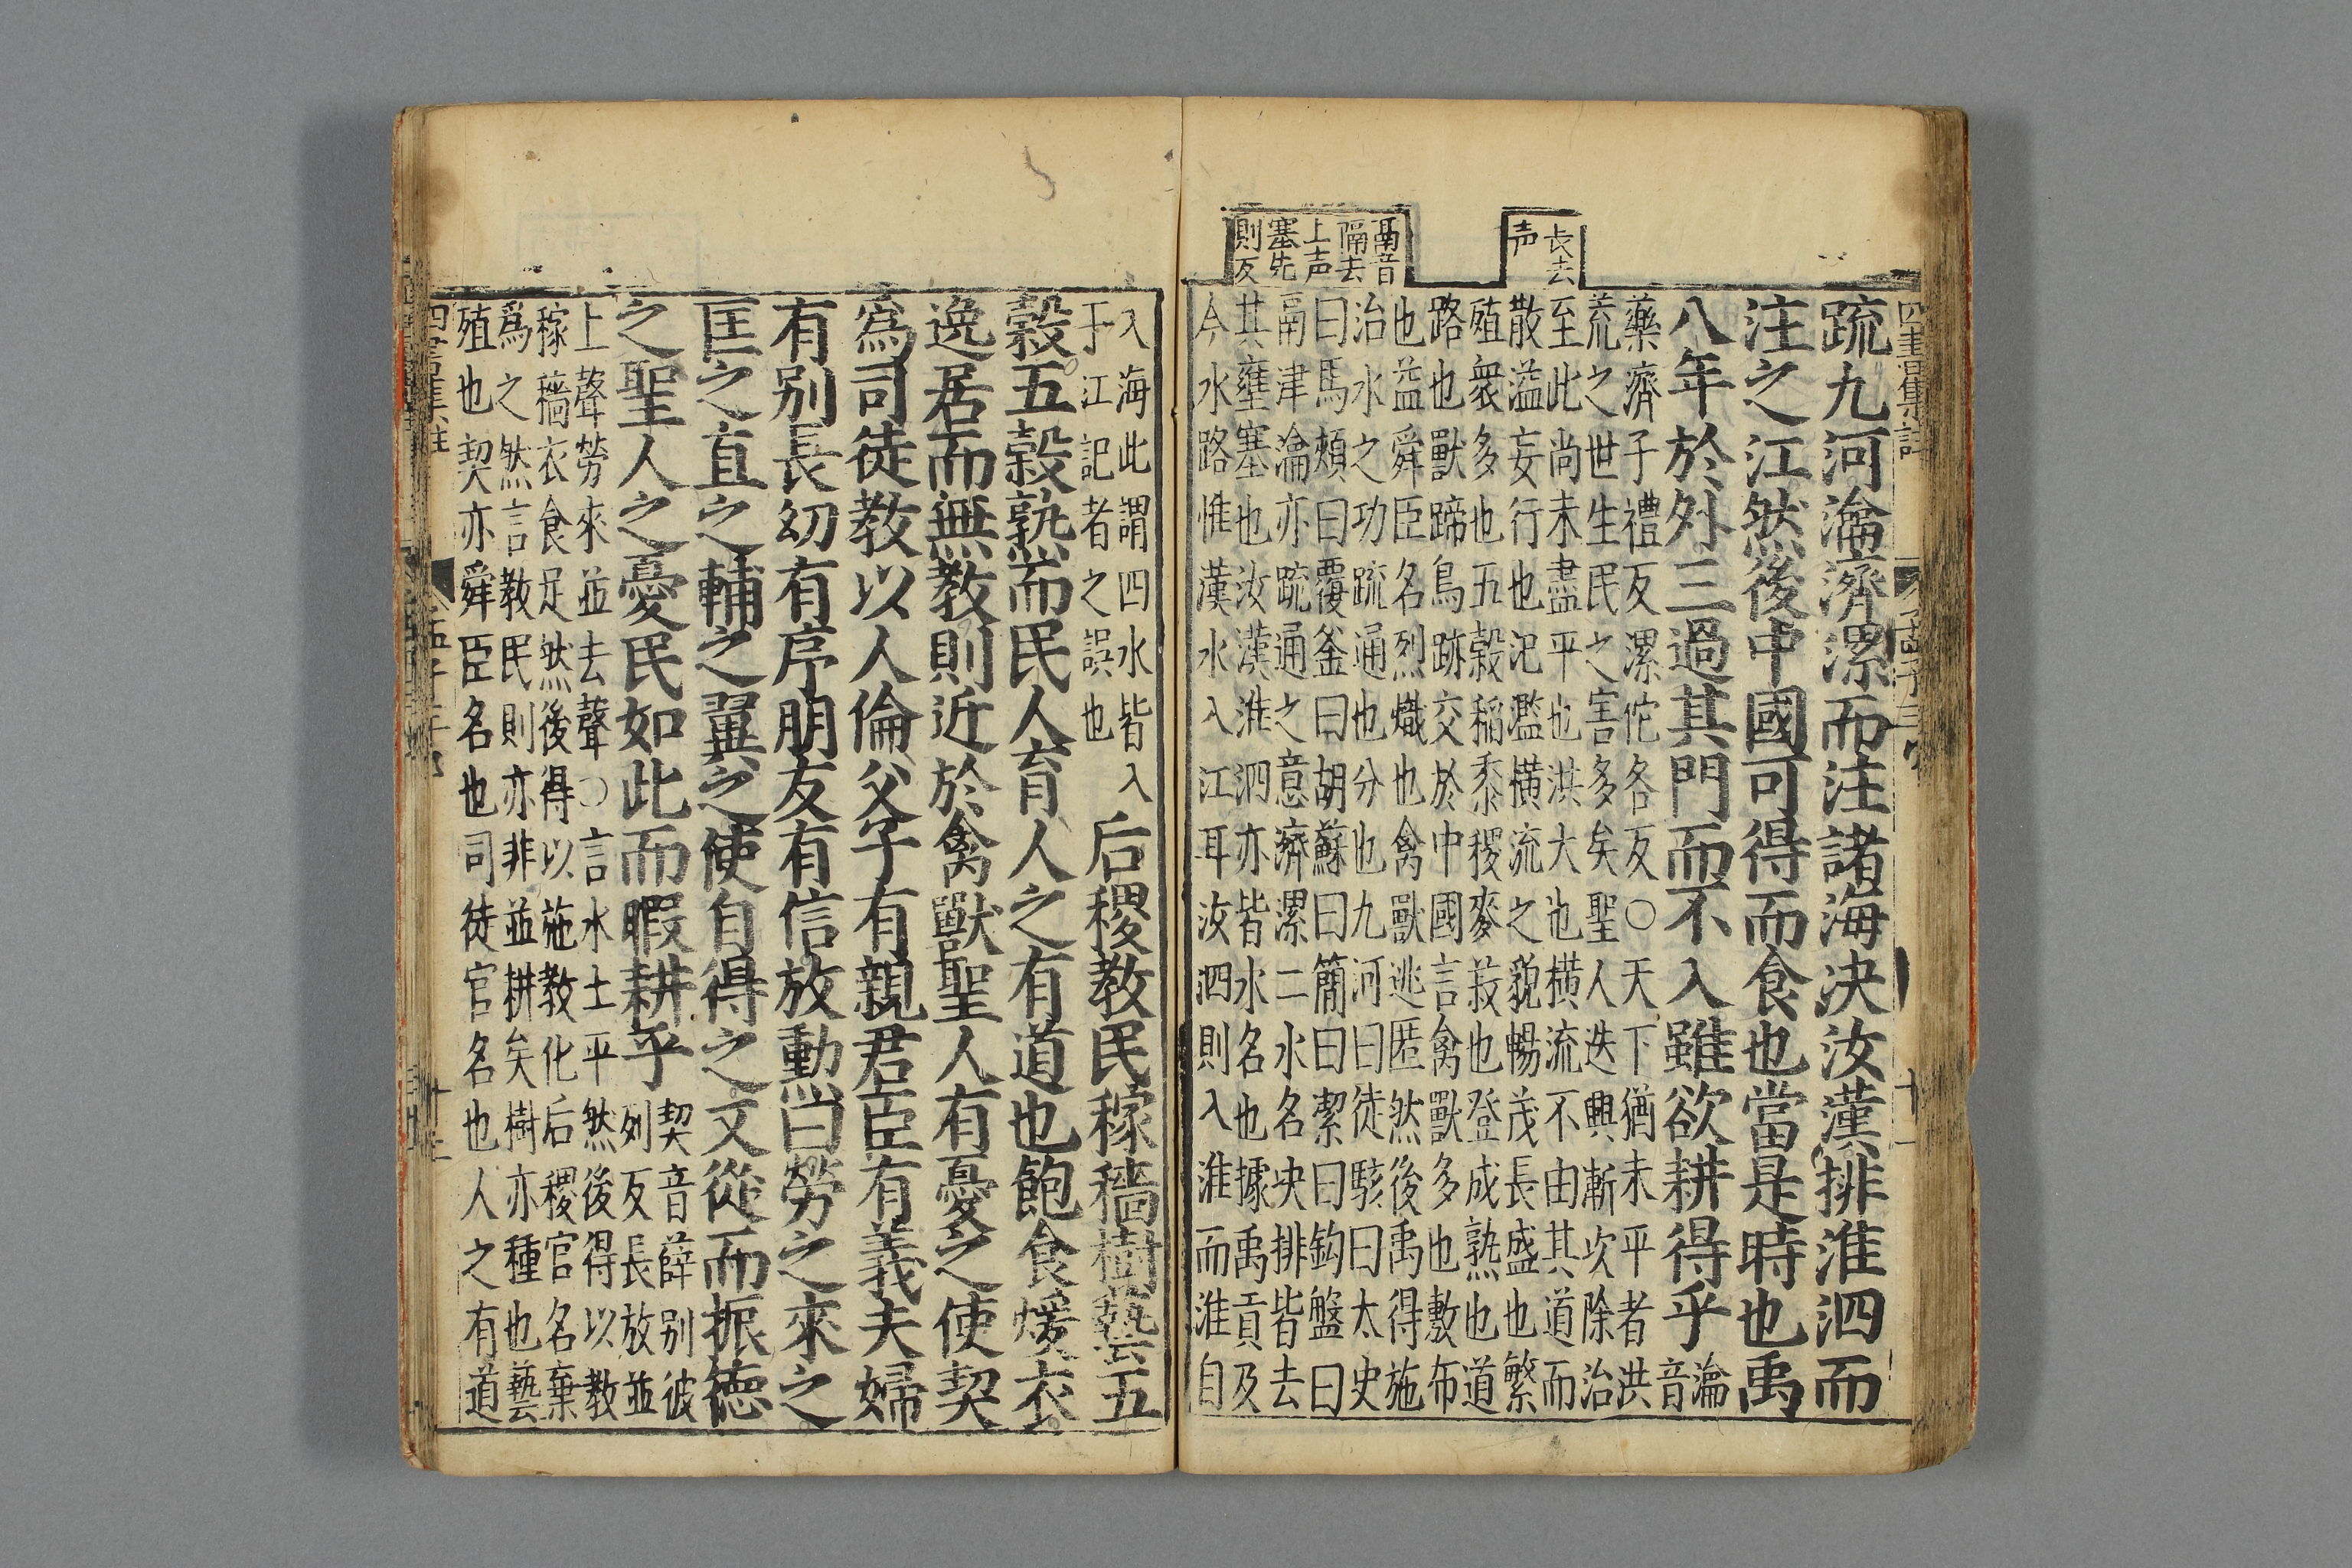 四書集註
長去
声
鬲音
隔去
上声
塞先
則反
疏九河瀹濟漯而注諸海决汝漢排淮泗而
注之江然後中國可得而食也當是時也禹
八年於外三過其門而不入雖欲耕得乎瀹音
藥濟子禮反漯佗各反○天下猶未平者洪
荒之世生民之害多矣聖人迭興漸次除治
至此尚未盡平也洪大也橫流不由其道而
散溢妄行也氾濫橫流之貌暢茂長盛也繁
殖衆多也五穀稻黍稷麥菽也登成熟也道
路也獸蹄鳥跡交於中國言禽獸多也敷布
也益舜臣名烈熾也禽獸逃匿然後禹得施
治水之功疏通也分也九河曰徒駭曰太史
曰馬頰曰覆釜曰胡蘇曰簡曰潔曰鈎盤曰
鬲津瀹亦疏通之意濟漯二水名决排皆去
其壅塞也汝漢淮泗亦皆水名也據禹貢及
今水路惟漢水入江耳汝泗則入淮而淮自
入海此謂四水皆入
于江記者之誤也
后稷教民稼穡樹藝五
穀五穀熟而民人育人之有道也飽食煖衣
逸居而無教則近於禽獸聖人有憂之使契
爲司徒教以人倫父子有親君臣有義夫婦
有別長幼有序朋友有信放勳曰勞之來之
匡之直之輔之翼之使自得之又從而振德
之聖人之憂民如此而暇耕乎
契音薛别彼
列反長放並
上聲勞來並去聲○言水土平然後得以教
稼穡衣食足然後得以施教化后稷官名棄
爲之然言教民則亦非並耕矣樹亦種也藝
殖也契亦舜臣名也司徒官名也人之有道
四書集註